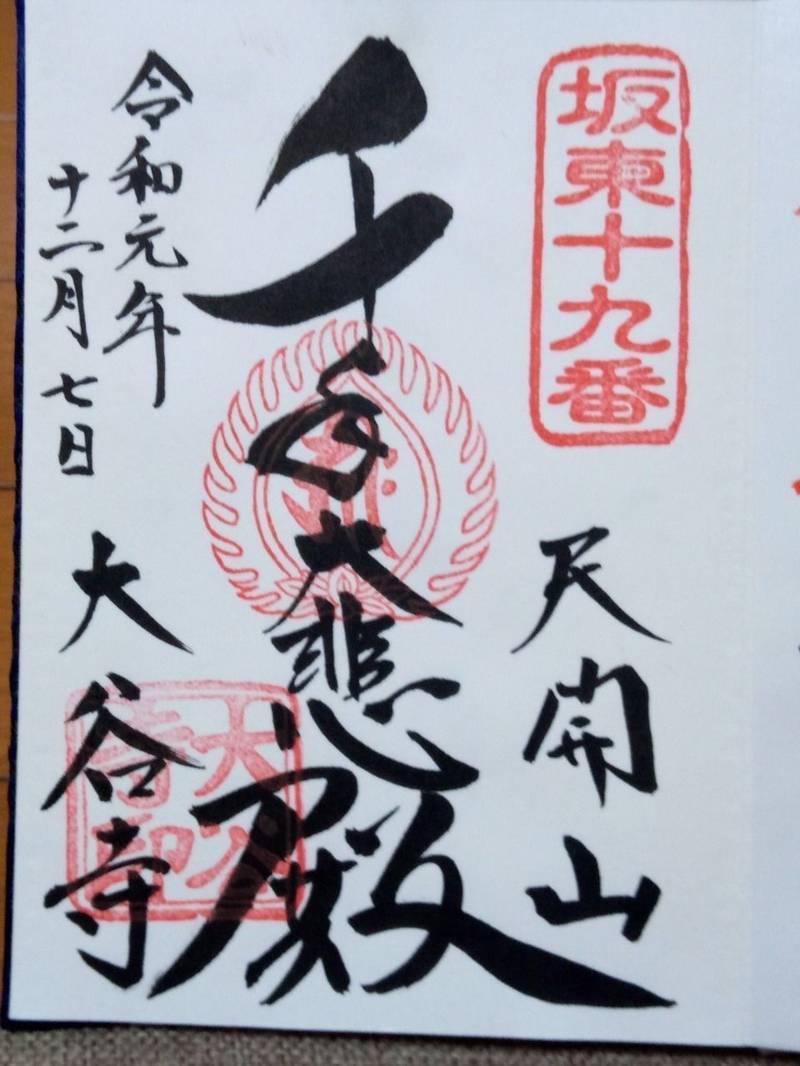 坂東十九番
天開山
千手大悲殿
大谷寺
令和元年
十二月七日